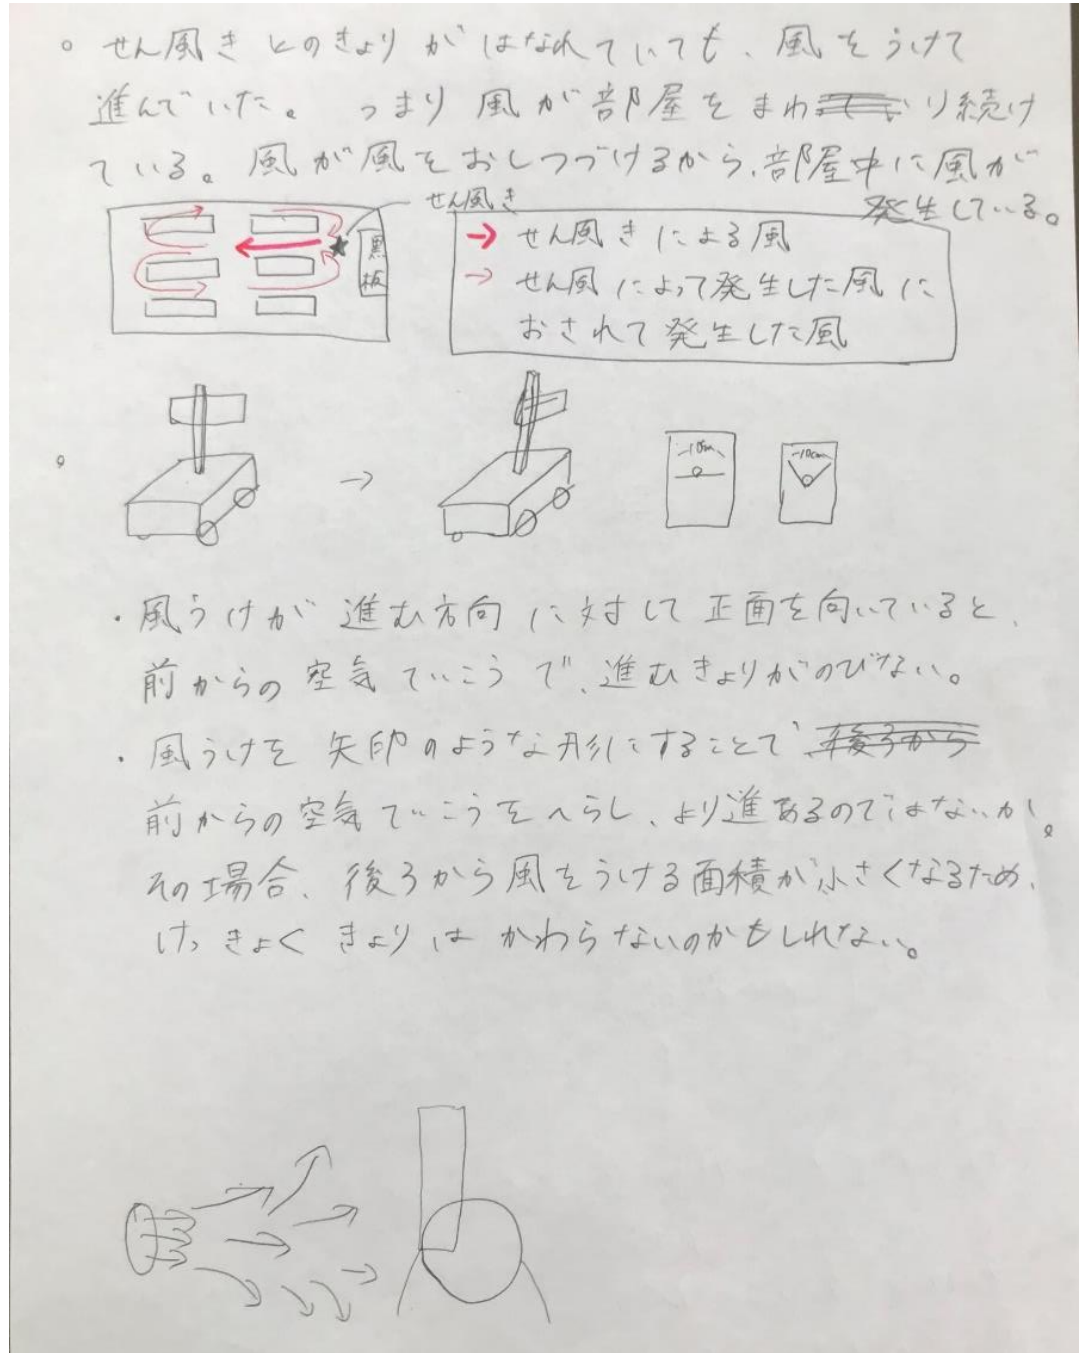 。せん風きとのきょりがはなれていても、風をうけて
進んでいた。つまり風が部屋をまわり続け
ている。風が風をおしつづけるから、部屋中に風が
発生している。
せん風き
黒板
→ せん風きによる風
→ せん風によって発生した風に
おされて発生した風
→
10cm
10cm
・風うけが進む方向に対して正面を向いていると、
前からの空気ていこうで、進むきょりがのびない。
・風うけを矢印のような形にすることで、後ろから
前からの空気ていこうをへらし、より進あるのではないか。
その場合、後ろから風をうける面積が小さくなるため、
けっきょくきょりはかわらないのかもしれない。